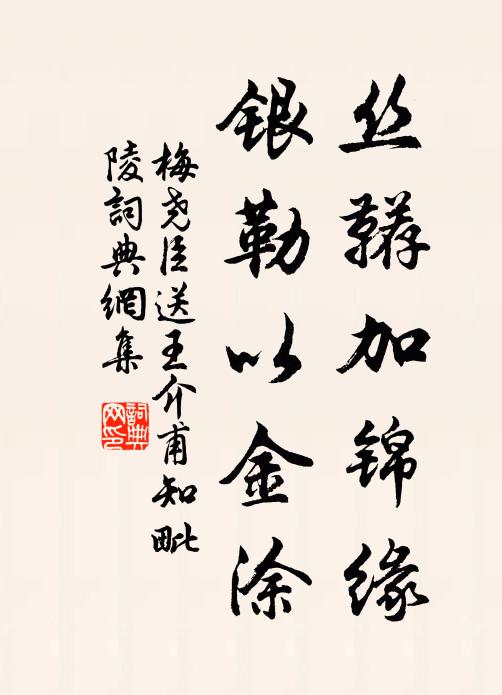 丝鞯加锦缘
银勒以金涂
梅尧臣送王介甫知毗
陵词典网集
詞典
网印